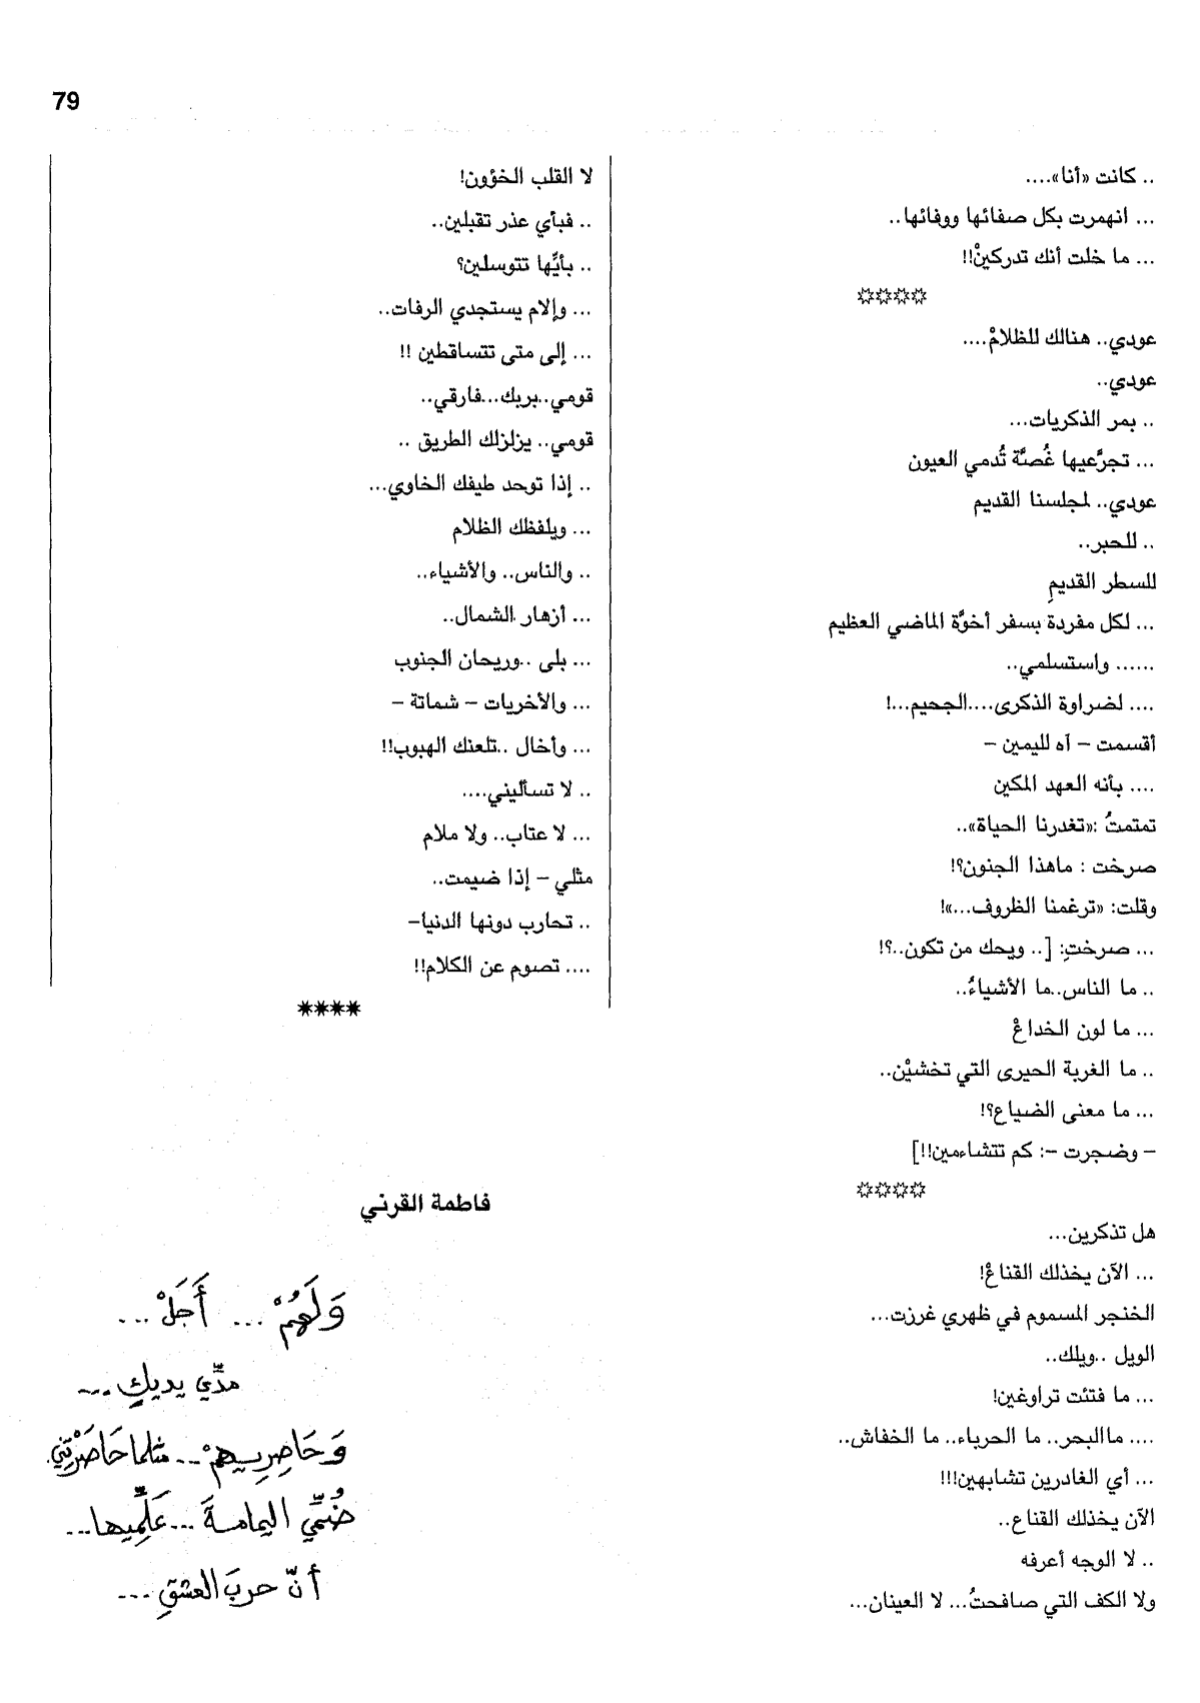 79
.. كانت «أنا»....
... انهمرت بكل صفائها ووفائها..
... ما خلت أنك تدركينْ!!
✡✡✡✡
عودي.. هنالك للظلامْ....
عودي..
.. بمر الذكريات...
... تجرَّعيها غُصَّة تُدمي العيون
عودي.. لمجلسنا القديم
.. للحبر..
للسطر القديمِ
... لكل مفردة بسفر أخوَّة الماضي العظيم
...... واستسلمي..
.... لضراوة الذكرى....الجحيم...!
أقسمت – آه لليمين –
.... بأنه العهد المكين
تمتمتُ :«تغدرنا الحياة»..
صرخت : ماهذا الجنون؟!
وقلت: «ترغمنا الظروف...»!
... صرختِ: [.. ويحك من تكون..؟!
.. ما الناس..ما الأشياءُ..
... ما لون الخداعْ
.. ما الغربة الحيرى التي تخشيْن..
... ما معنى الضياع؟!
– وضجرت –: كم تتشاءمين!!]
✡✡✡✡
هل تذكرين...
... الآن يخذلك القناعْ!
الخنجر المسموم في ظهري غرزت...
الويل ..ويلك..
... ما فتئت تراوغين!
.... ماالبحر.. ما الحرباء.. ما الخفاش..
... أي الغادرين تشابهين!!!
الآن يخذلك القناع..
.. لا الوجه أعرفه
ولا الكف التي صافحتُ... لا العينان...
لا القلب الخؤون!
.. فبأي عذر تقبلين..
.. بأيِّها تتوسلين؟
... وإلام يستجدي الرفات..
... إلى متى تتساقطين !!
قومي..بربك...فارقي..
قومي.. يزلزلك الطريق ..
.. إذا توحد طيفك الخاوي...
... ويلفظك الظلام
.. والناس.. والأشياء..
... أزهار الشمال..
... بلى ..وريحان الجنوب
... والأخريات – شماتة –
... وأخال ..تلعنك الهبوب!!
.. لا تسأليني....
... لا عتاب.. ولا ملام
مثلي – إذا ضيمت..
.. تحارب دونها الدنيا–
.... تصوم عن الكلام!!
✷✷✷✷
فاطمة القرني
وَلَهُمْ ... أَجَلْ ...
مدِّي يديكِ ...
وَحَاصِرِيهمْ ... مثلما حَاصَرْتِني.
ضُمِّي اليمامةَ ... عَلِّميها...
أنّ حربَ العشقِ ...